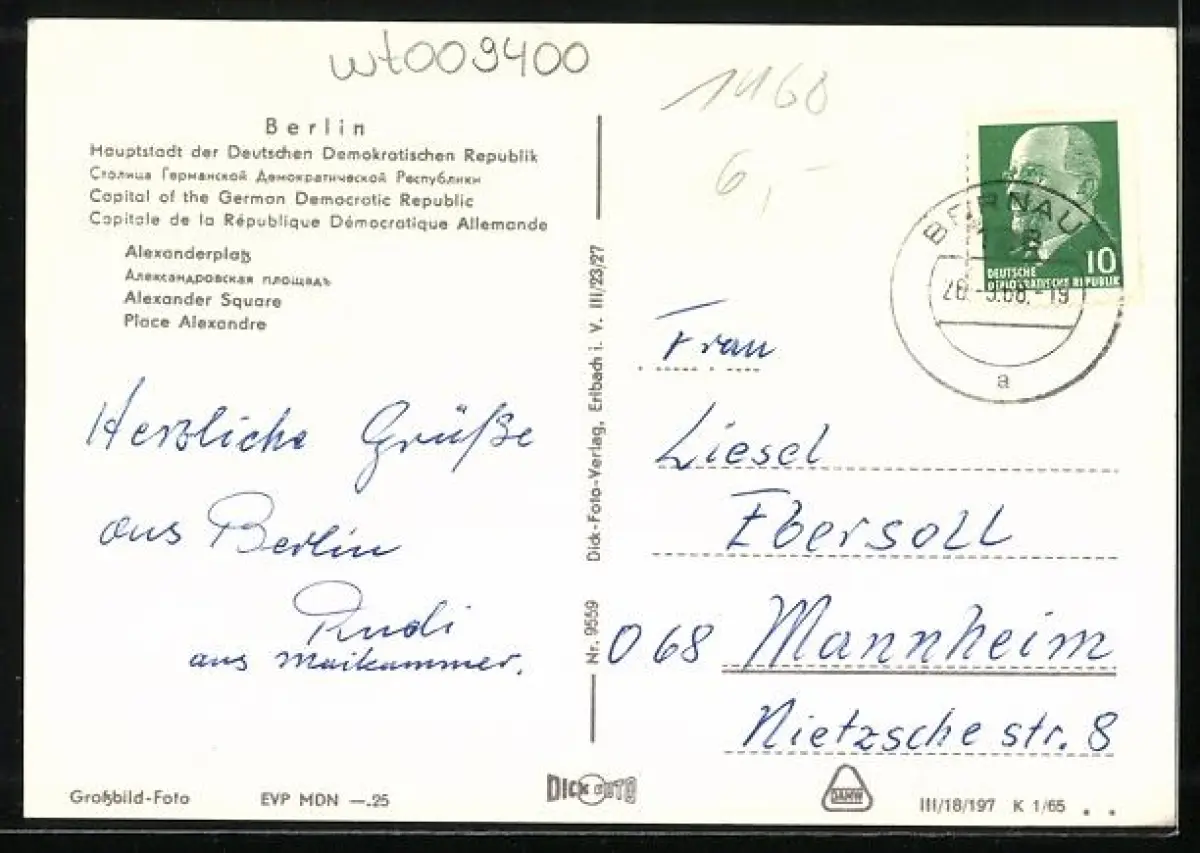 wt009400
1460
6,-
Berlin
Hauptstadt der Deutschen Demokratischen Republik
Столица Германской Демократической Республики
Capital of the German Democratic Republic
Capitale de la République Démocratique Allemande
Alexanderplatz
Александровская площадь
Alexander Square
Place Alexandre
Herzliche Grüße
aus Berlin
Rudi
aus Maikammer.
Großbild-Foto
EVP MDN —.25
Nr. 9559 Dick-Foto-Verlag, Erlbach i. V. III/23/27
DICK FOTO
BERNAU
a
10
DEUTSCHE
DEMOKRATISCHE REPUBLIK
Frau
Liesel
Ebersoll
068 Mannheim
Nietzsche str. 8
DAMW
III/18/197 K 1/65